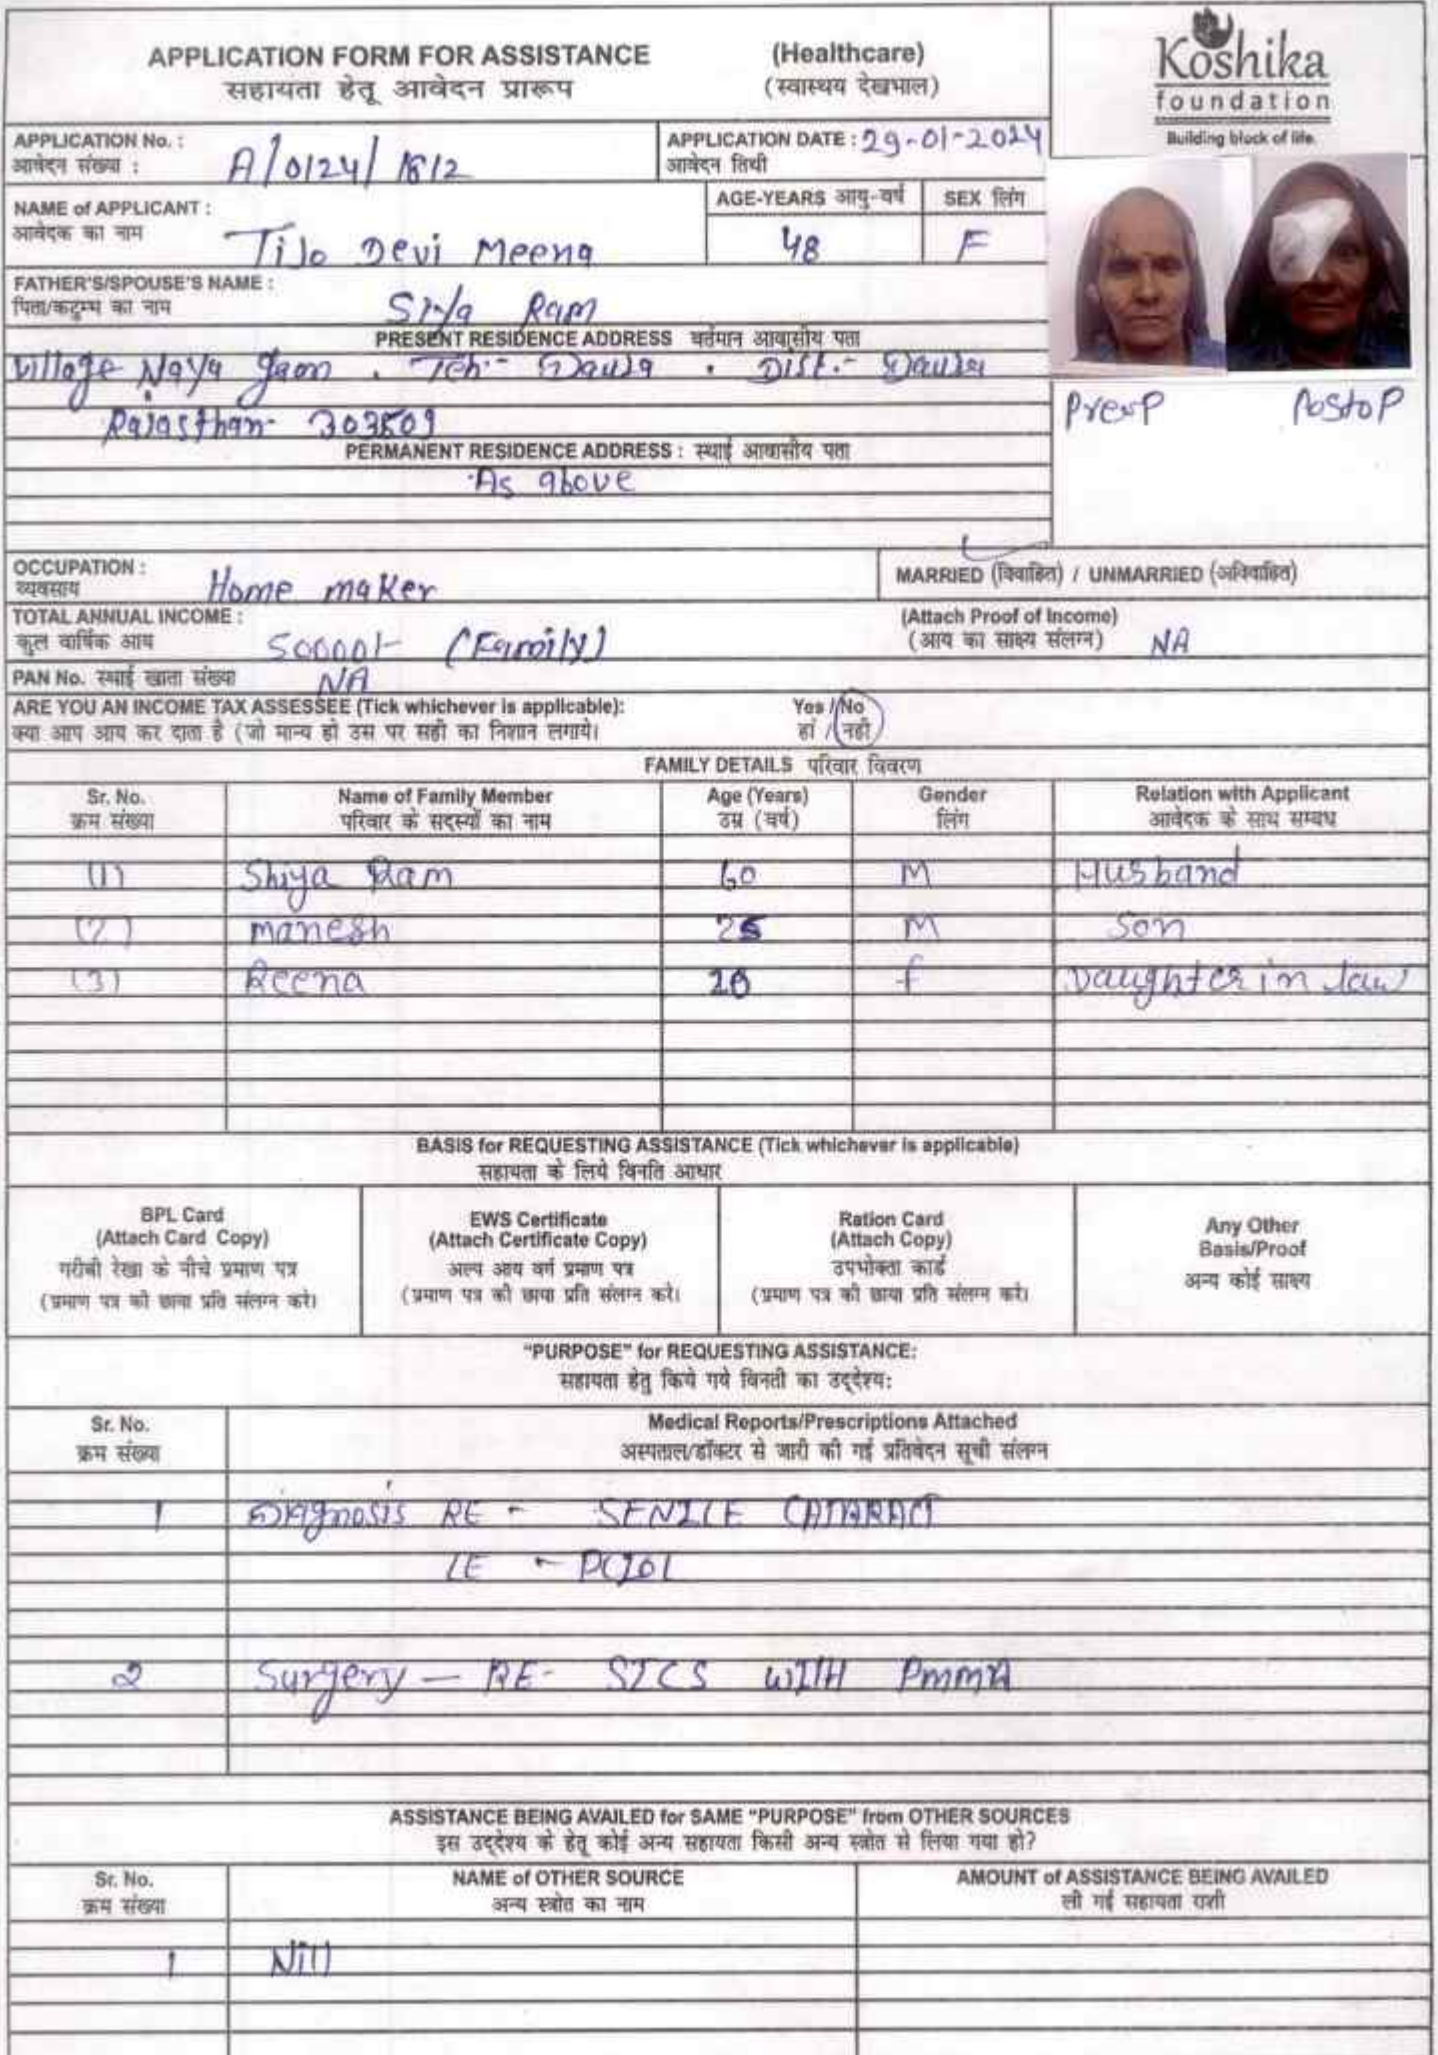 APPLICATION FORM FOR ASSISTANCE (Healthcare)
सहायता हेतू आवेदन प्रारूप (स्वास्थय देखभाल)
Koshika
foundation
Building block of life.
APPLICATION No. :
आवेदन संख्या : A/0124/1812
APPLICATION DATE : 29-01-2024
आवेदन तिथी
NAME of APPLICANT :
आवेदक का नाम Tijo Devi Meena
AGE-YEARS आयु-वर्ष SEX लिंग
48 F
FATHER'S/SPOUSE'S NAME :
पिता/कटुम्भ का नाम Siya Ram
PRESENT RESIDENCE ADDRESS वर्तमान आवासीय पता
Village Naya gaon . Teh:- Dausa . Dist.- Dausa
Rajasthan- 303509
PERMANENT RESIDENCE ADDRESS : स्थाई आवासीय पता
As above
PreoP PostoP
OCCUPATION :
व्यवसाय Home maker
MARRIED (विवाहित) / UNMARRIED (अविवाहित)
TOTAL ANNUAL INCOME : (Attach Proof of Income)
कुल वार्षिक आय 50000/- (Family) (आय का साक्ष्य संलग्न) NA
PAN No. स्थाई खाता संख्या NA
ARE YOU AN INCOME TAX ASSESSEE (Tick whichever is applicable): Yes / No
क्या आप आय कर दाता है (जो मान्य हो उस पर सही का निशान लगाये। हां / नहीं
FAMILY DETAILS परिवार विवरण
Sr. No. Name of Family Member Age (Years) Gender Relation with Applicant
क्रम संख्या परिवार के सदस्यों का नाम उम्र (वर्ष) लिंग आवेदक के साथ सम्बध
(1) Shiya Ram 60 M Husband
(2) manesh 25 M Son
(3) Reena 20 f Daughter in law
BASIS for REQUESTING ASSISTANCE (Tick whichever is applicable)
सहायता के लिये विनति आधार
BPL Card
(Attach Card Copy)
गरीबी रेखा के नीचे प्रमाण पत्र
(प्रमाण पत्र की छाया प्रति संलग्न करे।
EWS Certificate
(Attach Certificate Copy)
अल्प आय वर्ग प्रमाण पत्र
(प्रमाण पत्र की छाया प्रति संलग्न करे।
Ration Card
(Attach Copy)
उपभोक्ता कार्ड
(प्रमाण पत्र की छाया प्रति संलग्न करे।
Any Other
Basis/Proof
अन्य कोई साक्ष्य
"PURPOSE" for REQUESTING ASSISTANCE:
सहायता हेतु किये गये विनती का उद्देश्य:
Sr. No. Medical Reports/Prescriptions Attached
क्रम संख्या अस्पताल/डॉक्टर से जारी की गई प्रतिवेदन सूची संलग्न
1 Diagnosis RE - SENILE CATARACT
LE - PCIOL
2 Surgery - RE- SICS WITH PMMA
ASSISTANCE BEING AVAILED for SAME "PURPOSE" from OTHER SOURCES
इस उद्देश्य के हेतू कोई अन्य सहायता किसी अन्य स्त्रोत से लिया गया हो?
Sr. No. NAME of OTHER SOURCE AMOUNT of ASSISTANCE BEING AVAILED
क्रम संख्या अन्य स्त्रोत का नाम ली गई सहायता राशी
1 Nill